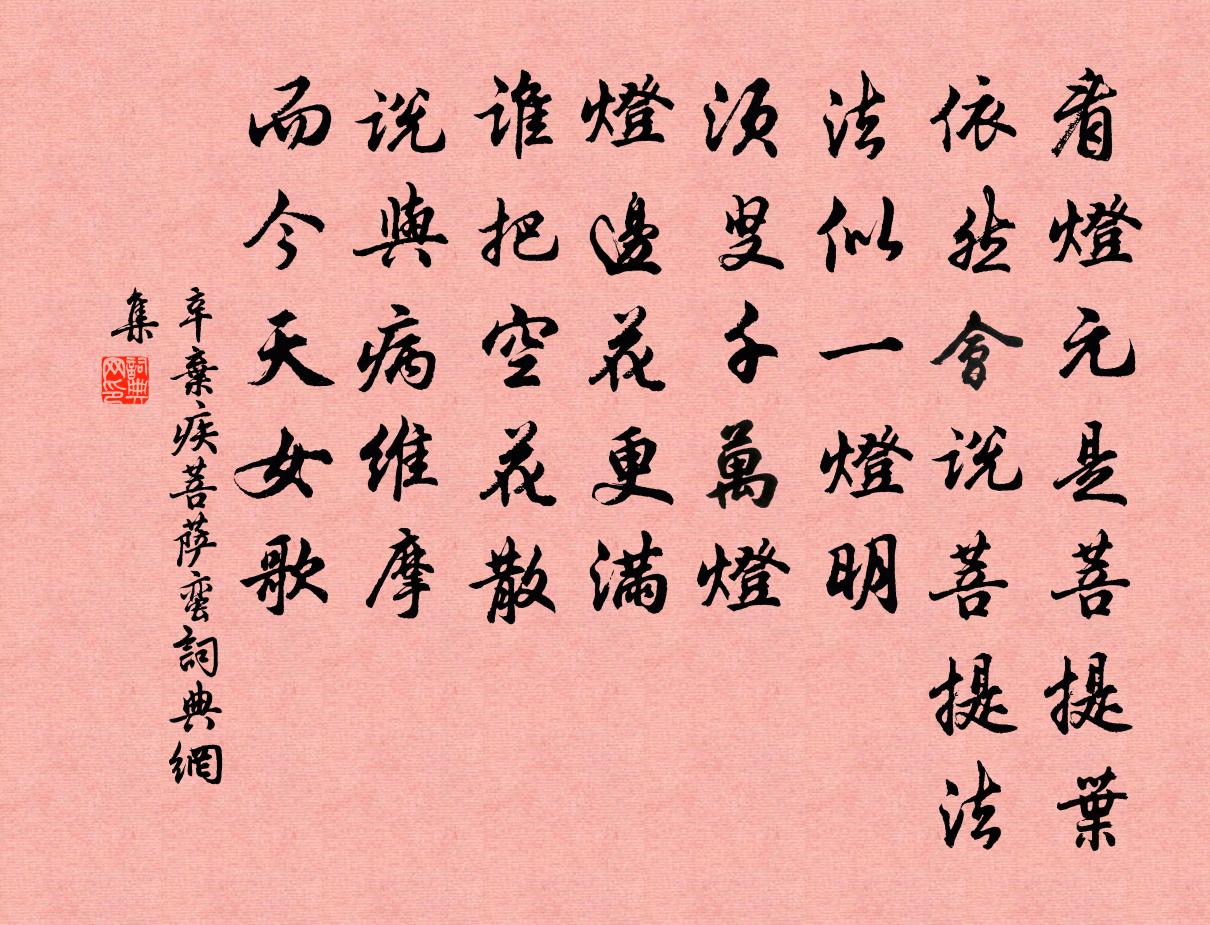 看燈元是菩提葉
依然會說菩提法
法似一燈明
須臾千萬燈
燈邊花更滿
誰把空花散
說與病維摩
而今天女歌
辛棄疾菩薩蠻詞典網
集
詞典
网印